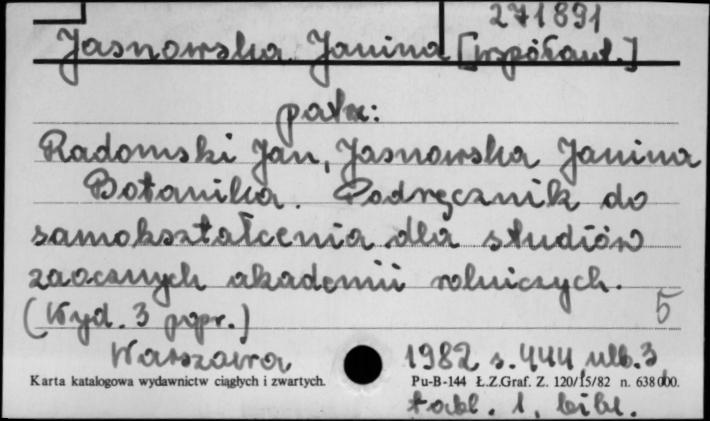 271891
Jasnowska Janina [współaut.]
patrz:
Radomski Jan, Jasnowska Janina
Botanika. Podręcznik do
samokształcenia dla studiów
zaocznych akademii rolniczych.
(Wyd. 3 popr.)
5
Warszawa 1982 s. 444, nlb. 3,
Karta katalogowa wydawnictw ciągłych i zwartych. Pu-B-144 Ł.Z.Graf. Z. 120/15/82 n. 638000.
tabl. 1, bibl.